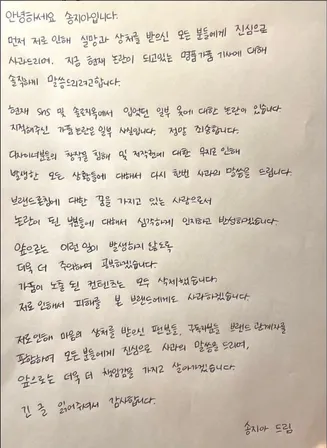 안녕하세요 송지아입니다.
먼저 저로 인해 실망과 상처를 받으신 모든 분들에게 진심으로
사과드리며, 지금 현재 논란이 되고있는 명품가품 기사에 대해
솔직하게 말씀드리려고합니다.
현재 SNS 및 솔로지옥에서 입었던 일부 옷에 대한 논란이 있습니다.
지적해주신 가품논란은 일부 사실입니다. 정말 죄송합니다.
디자이너분들의 창작물 침해 및 저작권에 대한 무지로 인해
발생한 모든 상황들에 대해서 다시 한번 사과의 말씀을 드립니다.
브랜드론칭에 대한 꿈을 가지고 있는 사람으로서
논란이 된 부분들에 대해서 심각하게 인지하고 반성하겠습니다.
앞으로는 이런 일이 발생하지 않도록
더욱 더 주의하며 공부하겠습니다.
가품이 노출 된 컨텐츠는 모두 삭제했습니다.
저로 인해서 피해를 본 브랜드에게도 사과하겠습니다.
저로인해 마음의 상처를 받으신 팬분들, 구독자님들 브랜드 관계자를
포함하여 모든분들에게 진심으로 사과의 말씀을 드리며,
앞으로는 더욱 더 책임감을 가지고 살아가겠습니다.
긴 글 읽어주셔서 감사합니다.
송지아 드림